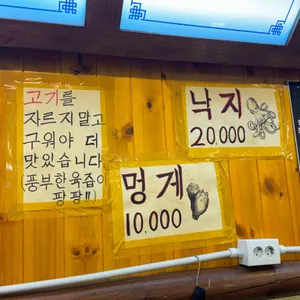 고기를
자르지말고
구워야 더
맛있습니다
(풍부한 육즙이
팡팡!!)
낙지
20.000
멍게
10.000